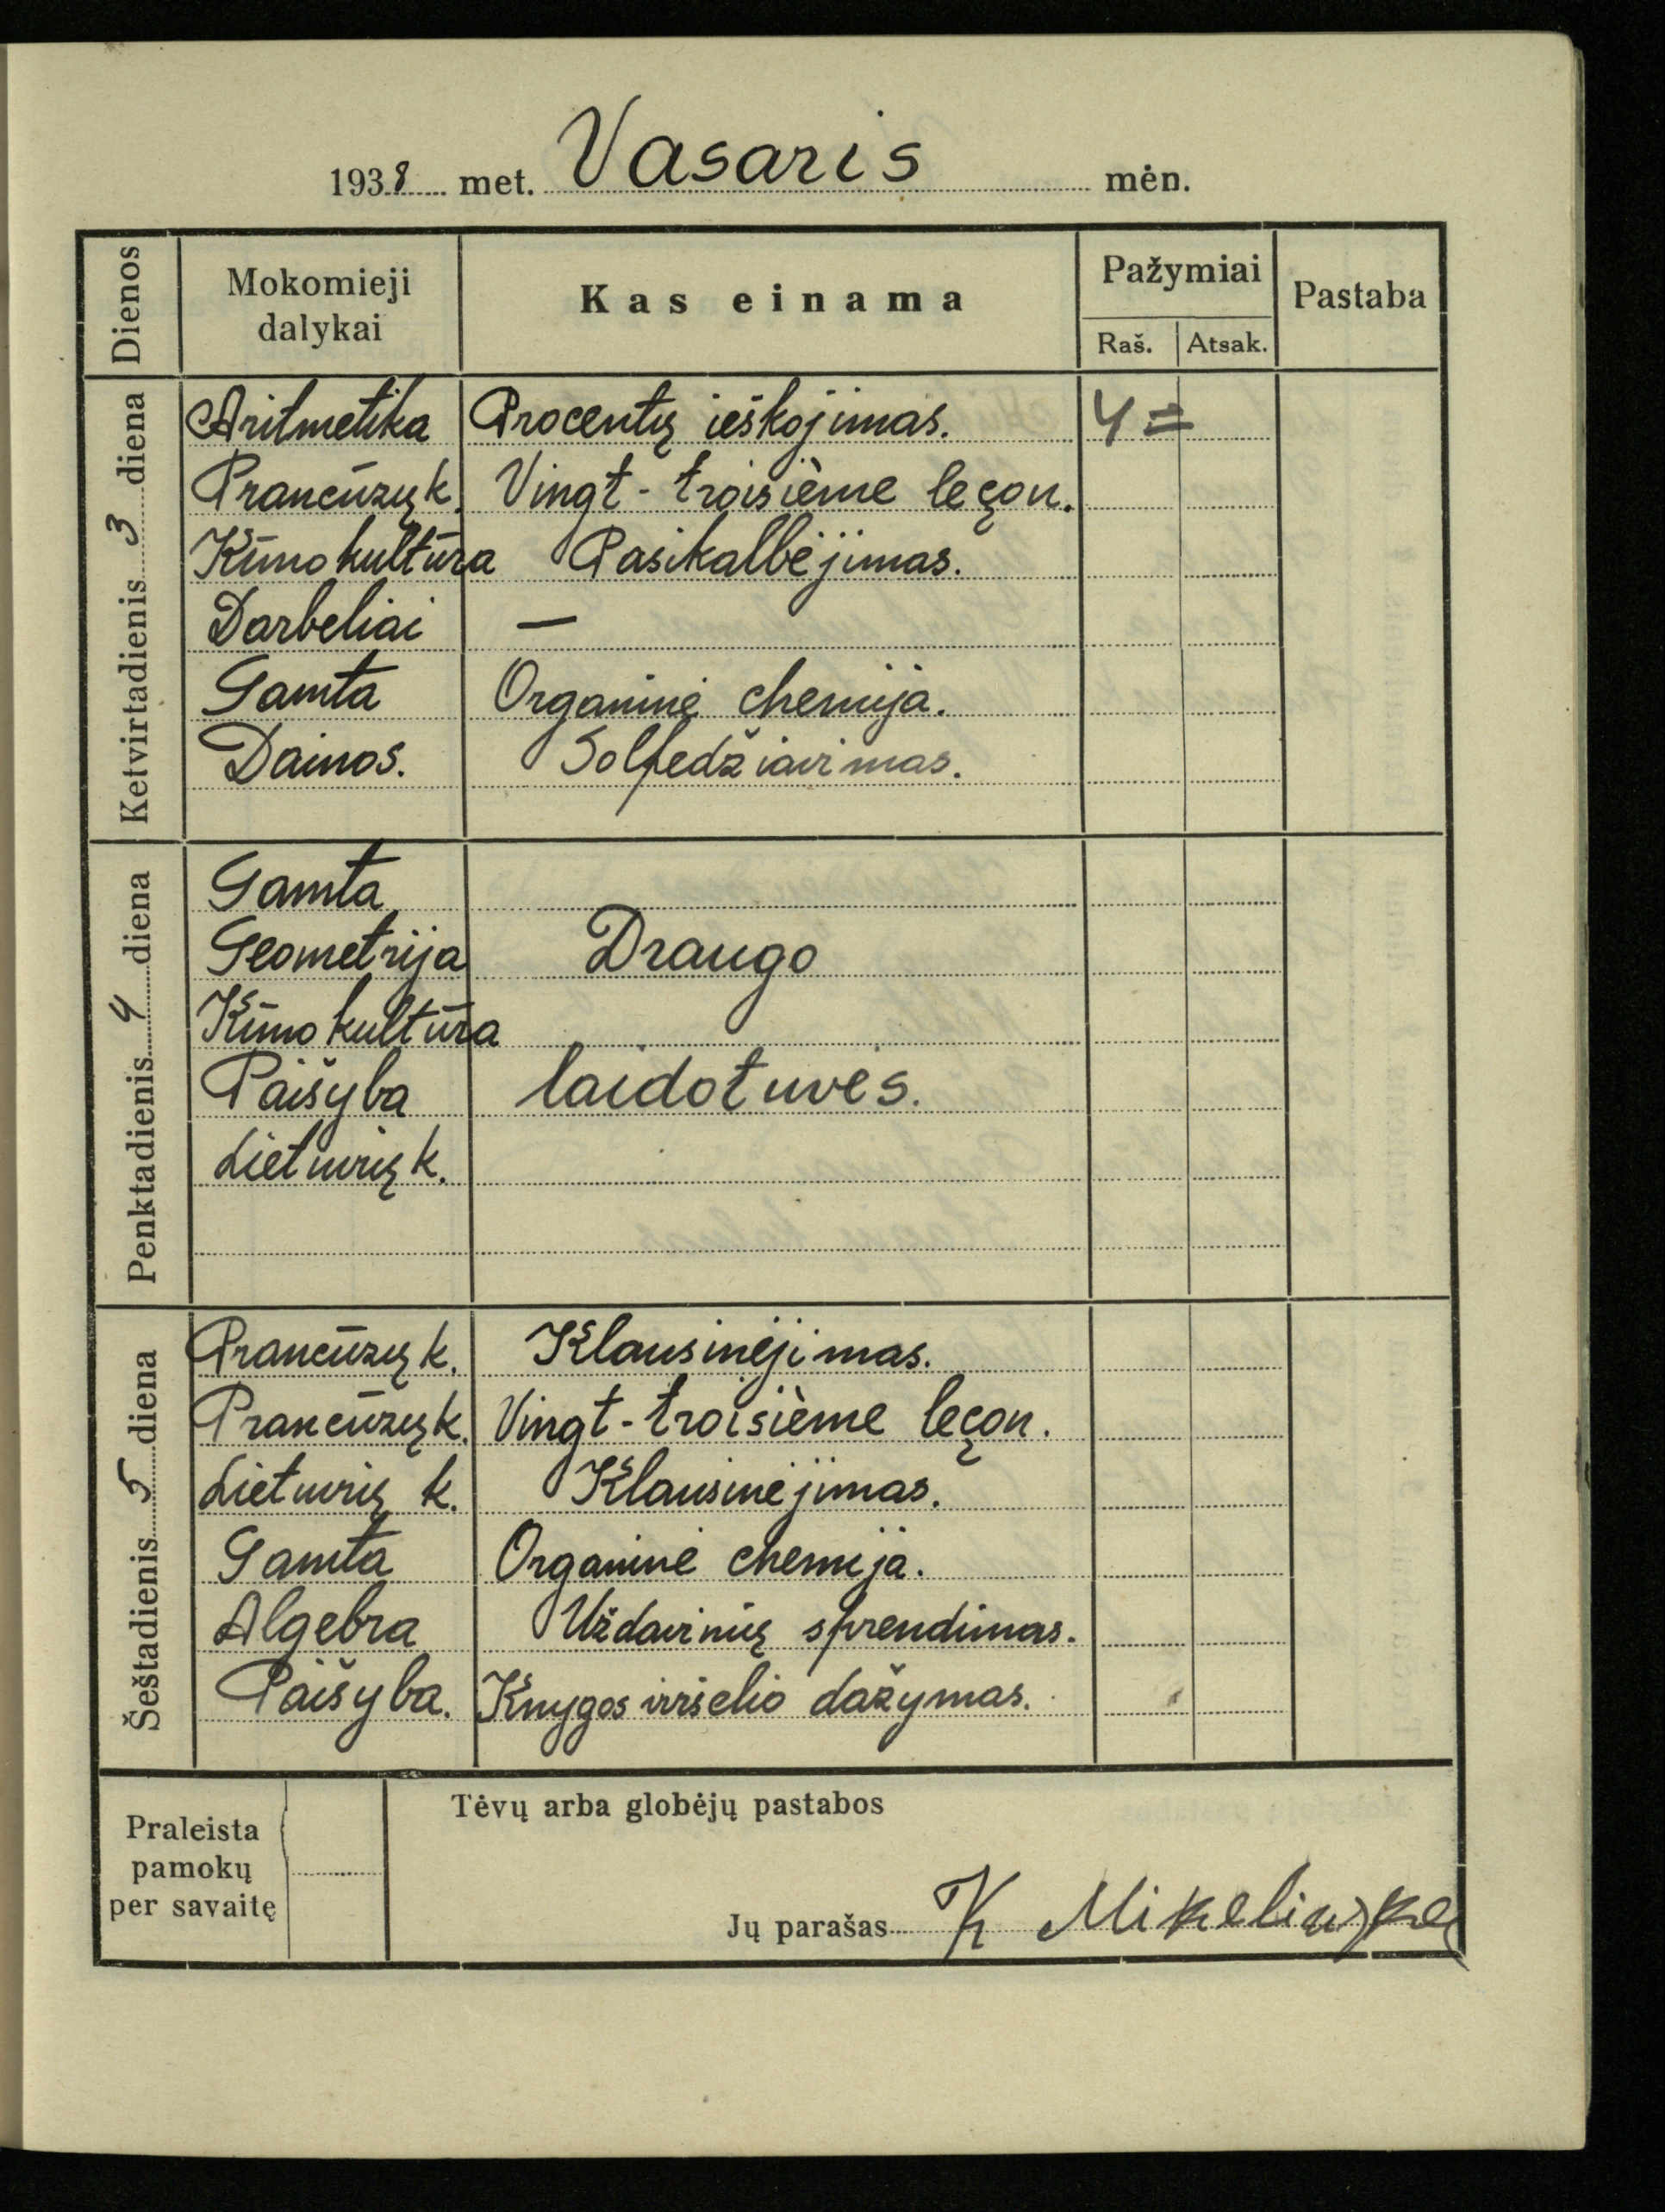 1938 met. Vasaris mėn.
Dienos Mokomieji dalykai Kas einama Pažymiai Pastaba
Raš. Atsak.
Ketvirtadienis 3 diena
Aritmetika Procentų ieškojimas. 4=
Prancūzų k. Vingt-troisième leçon.
Kūno kultūra Pasikalbėjimas.
Darbeliai —
Gamta Organinė chemija.
Dainos. Solfedžiavimas.
Penktadienis 4 diena
Gamta
Geometrija Draugo
Kūno kultūra
Paišyba laidotuvės.
Lietuvių k.
Šeštadienis 5 diena
Prancūzų k. Klausinėjimas.
Prancūzų k. Vingt-troisième leçon.
Lietuvių k. Klausinėjimas.
Gamta Organinė chemija.
Algebra Uždavinių sprendimas.
Paišyba. Knygos viršelio dažymas.
Praleista
pamokų
per savaitę
Tėvų arba globėjų pastabos
Jų parašas K